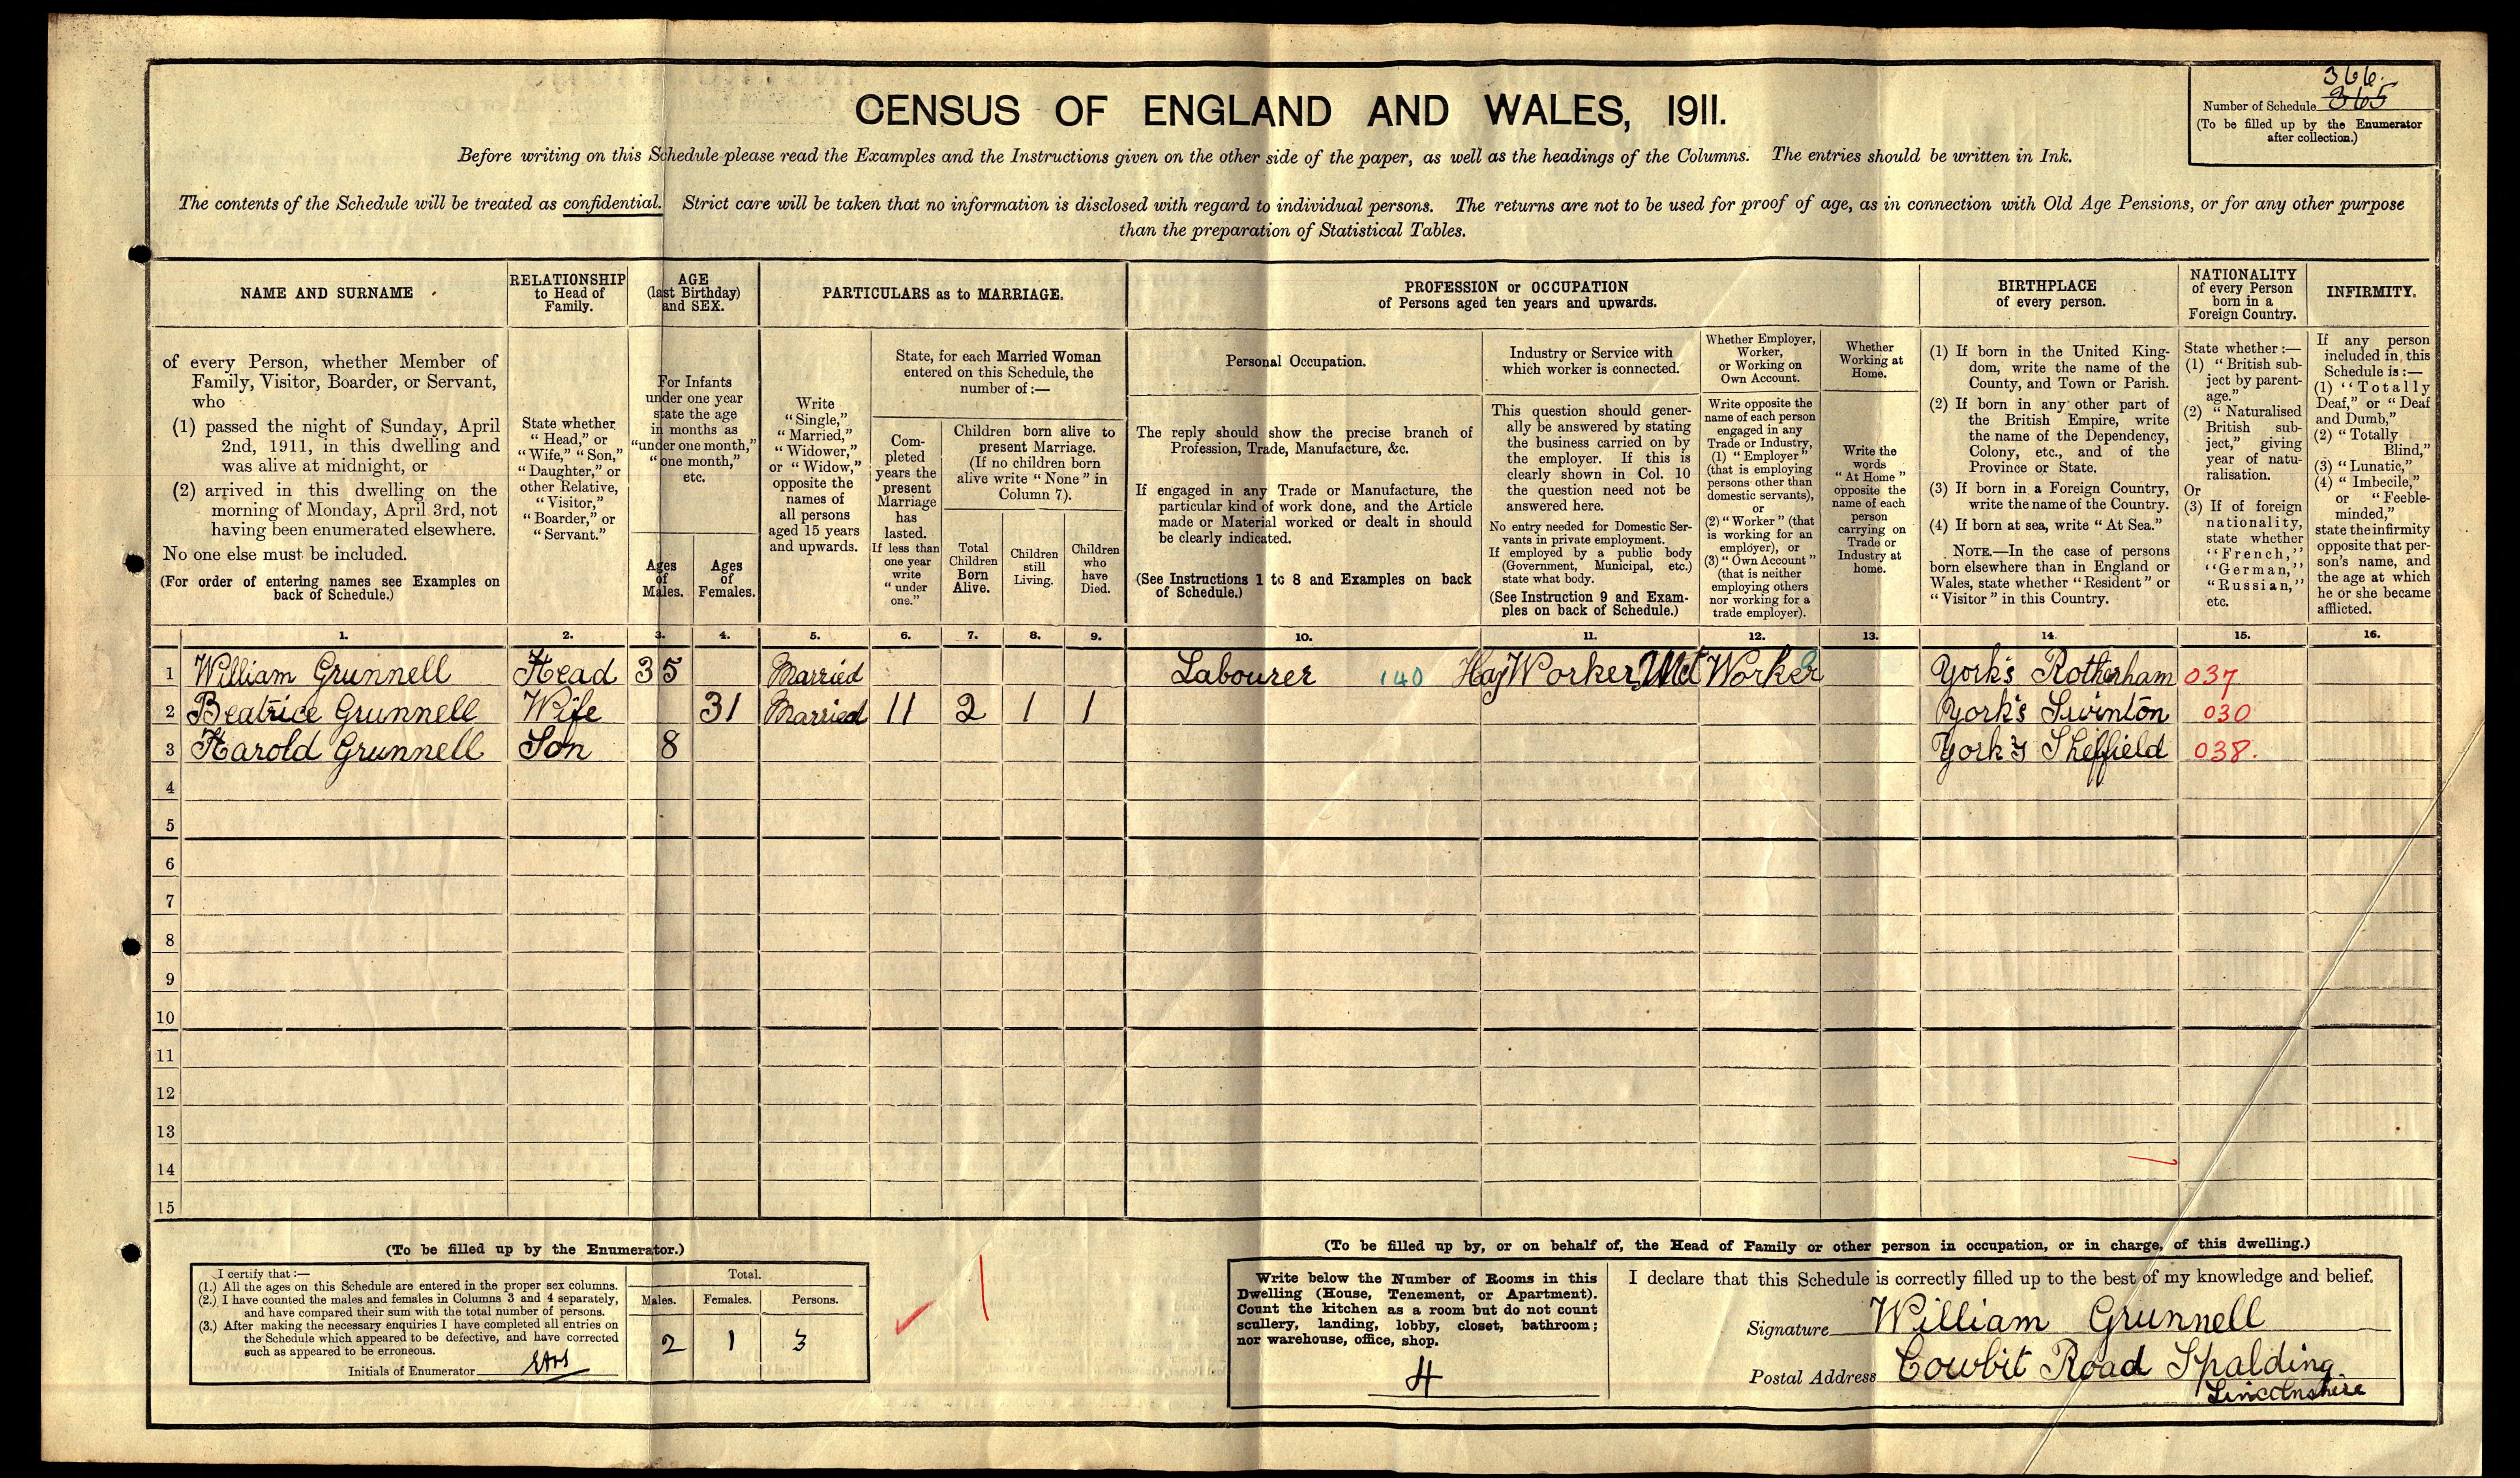 366.
Number of Schedule 365
(To be filled up by the Enumerator
after collection.)
CENSUS OF ENGLAND AND WALES, 1911.
Before writing on this Schedule please read the Examples and the Instructions given on the other side of the paper, as well as the headings of the Columns. The entries should be written in Ink.
The contents of the Schedule will be treated as confidential. Strict care will be taken that no information is disclosed with regard to individual persons. The returns are not to be used for proof of age, as in connection with Old Age Pensions, or for any other purpose
than the preparation of Statistical Tables.
NAME AND SURNAME
of every Person, whether Member of
Family, Visitor, Boarder, or Servant,
who
(1) passed the night of Sunday, April
2nd, 1911, in this dwelling and
was alive at midnight, or
(2) arrived in this dwelling on the
morning of Monday, April 3rd, not
having been enumerated elsewhere.
No one else must be included.
(For order of entering names see Examples on
back of Schedule.)
RELATIONSHIP
to Head of
Family.
State whether
"Head," or
"Wife," "Son,"
"Daughter," or
other Relative,
"Visitor,"
"Boarder," or
"Servant."
AGE
(last Birthday)
and SEX.
For Infants
under one year
state the age
in months as
"under one month,"
"one month,"
etc.
Ages
of
Males.
Ages
of
Females.
PARTICULARS as to MARRIAGE.
Write
"Single,"
"Married,"
"Widower,"
or "Widow,"
opposite the
names of
all persons
aged 15 years
and upwards.
State, for each Married Woman
entered on this Schedule, the
number of:—
Com-
pleted
years the
present
Marriage
has
lasted.
If less than
one year
write
"under
one."
Children born alive to
present Marriage.
(If no children born
alive write "None" in
Column 7).
Total
Children
Born
Alive.
Children
still
Living.
Children
who
have
Died.
PROFESSION or OCCUPATION
of Persons aged ten years and upwards.
Personal Occupation.
The reply should show the precise branch of
Profession, Trade, Manufacture, &c.
If engaged in any Trade or Manufacture, the
particular kind of work done, and the Article
made or Material worked or dealt in should
be clearly indicated.
(See Instructions 1 to 8 and Examples on back
of Schedule.)
Industry or Service with
which worker is connected.
This question should gener-
ally be answered by stating
the business carried on by
the employer. If this is
clearly shown in Col. 10
the question need not be
answered here.
No entry needed for Domestic Ser-
vants in private employment.
If employed by a public body
(Government, Municipal, etc.)
state what body.
(See Instruction 9 and Exam-
ples on back of Schedule.)
Whether Employer,
Worker,
or Working on
Own Account.
Write opposite the
name of each person
engaged in any
Trade or Industry,
(1) "Employer"
(that is employing
persons other than
domestic servants),
or
(2) "Worker" (that
is working for an
employer), or
(3) "Own Account"
(that is neither
employing others
nor working for a
trade employer).
Whether
Working at
Home.
Write the
words
"At Home"
opposite the
name of each
person
carrying on
Trade or
Industry at
home.
BIRTHPLACE
of every person.
(1) If born in the United King-
dom, write the name of the
County, and Town or Parish.
(2) If born in any other part of
the British Empire, write
the name of the Dependency,
Colony, etc., and of the
Province or State.
(3) If born in a Foreign Country,
write the name of the Country.
(4) If born at sea, write "At Sea."
NOTE.—In the case of persons
born elsewhere than in England or
Wales, state whether "Resident" or
"Visitor" in this Country.
NATIONALITY
of every Person
born in a
Foreign Country.
State whether:—
(1) "British sub-
ject by parent-
age."
(2) "Naturalised
British sub-
ject," giving
year of natu-
ralisation.
Or
(3) If of foreign
nationality,
state whether
"French,"
"German,"
"Russian,"
etc.
INFIRMITY.
If any person
included in this
Schedule is:—
(1) "Totally
Deaf," or "Deaf
and Dumb,"
(2) "Totally
Blind,"
(3) "Lunatic,"
(4) "Imbecile,"
or "Feeble-
minded,"
state the infirmity
opposite that per-
son's name, and
the age at which
he or she became
afflicted.
1. 2. 3. 4. 5. 6. 7. 8. 9. 10. 11. 12. 13. 14. 15. 16.
1 William Grunnell Head 35 Married Labourer 140 Hay Worker Worker York's Rotherham 037
2 Beatrice Grunnell Wife 31 Married 11 2 1 1 York's Swinton 030
3 Harold Grunnell Son 8 York's Sheffield 038.
4
5
6
7
8
9
10
11
12
13
14
15
(To be filled up by the Enumerator.)
I certify that:—
(1.) All the ages on this Schedule are entered in the proper sex columns.
(2.) I have counted the males and females in Columns 3 and 4 separately,
and have compared their sum with the total number of persons.
(3.) After making the necessary enquiries I have completed all entries on
the Schedule which appeared to be defective, and have corrected
such as appeared to be erroneous.
Initials of Enumerator
Total.
Males. Females. Persons.
2 1 3
(To be filled up by, or on behalf of, the Head of Family or other person in occupation, or in charge, of this dwelling.)
Write below the Number of Rooms in this
Dwelling (House, Tenement, or Apartment).
Count the kitchen as a room but do not count
scullery, landing, lobby, closet, bathroom;
nor warehouse, office, shop.
4
I declare that this Schedule is correctly filled up to the best of my knowledge and belief.
Signature William Grunnell
Postal Address Cowbit Road Spalding
Lincolnshire